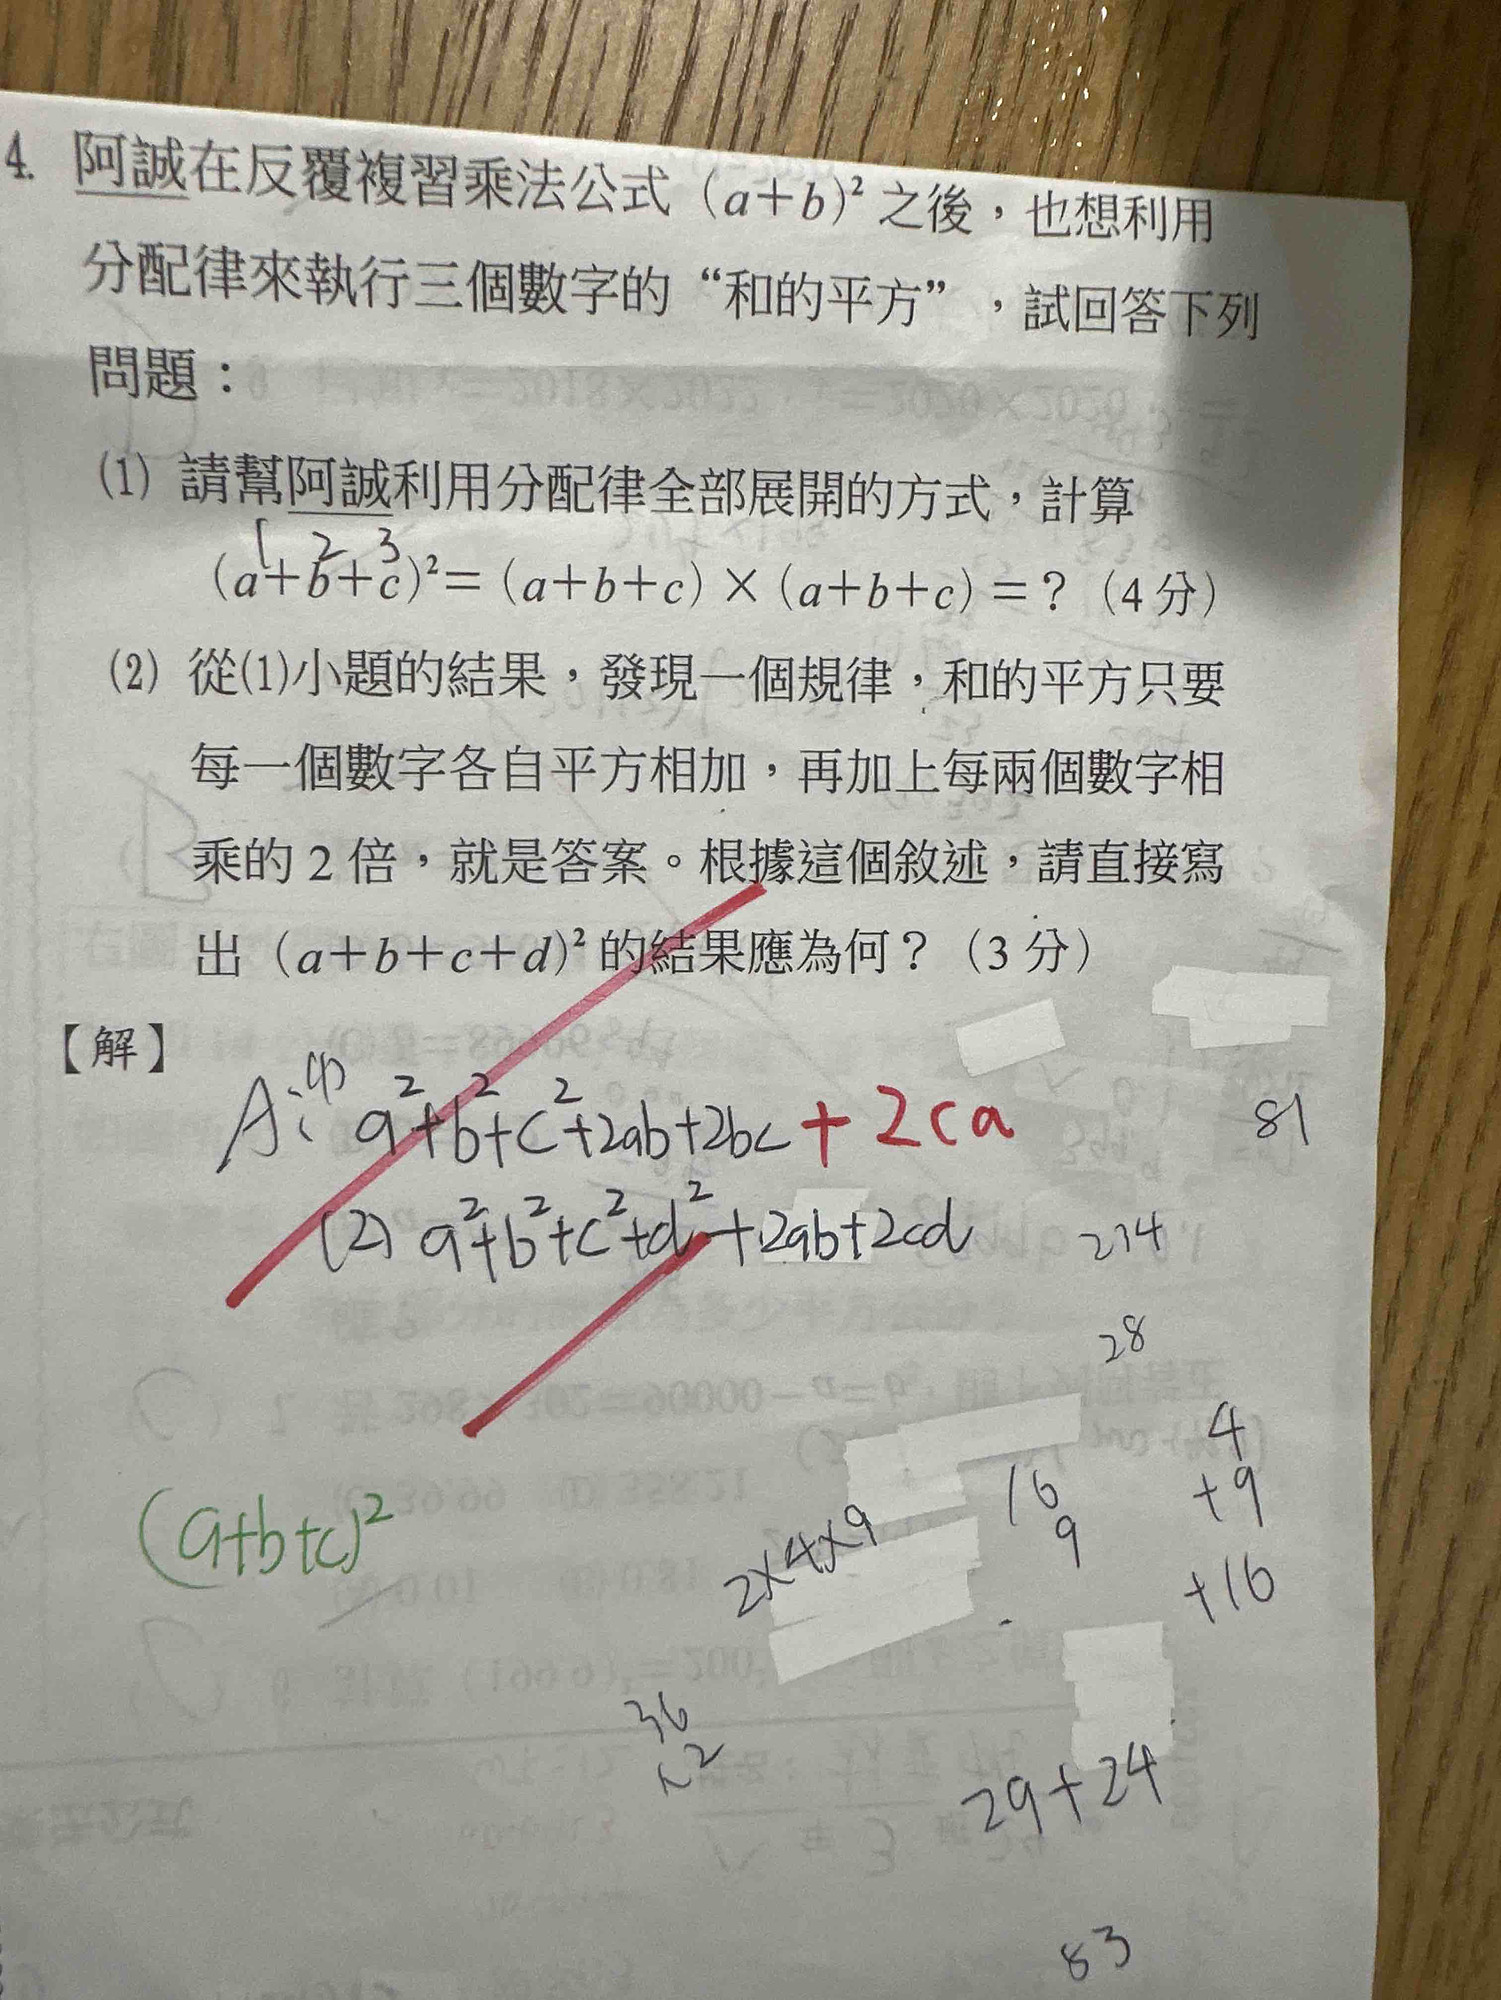 4. 阿誠在反覆複習乘法公式（a＋b）²之後，也想利用
分配律來執行三個數字的“和的平方”，試回答下列
問題：
(1) 請幫阿誠利用分配律全部展開的方式，計算
1 2 3
（a＋b＋c）²＝（a＋b＋c）×（a＋b＋c）＝？（4分）
(2) 從(1)小題的結果，發現一個規律，和的平方只要
每一個數字各自平方相加，再加上每兩個數字相
乘的2倍，就是答案。根據這個敘述，請直接寫
出（a＋b＋c＋d）²的結果應為何？（3分）
【解】
A:(1) a²+b²+c²+2ab+2bc+2ca
81
(2) a²+b²+c²+d²+2ab+2cd
234
28
4
+9
+16
16
9
(a+b+c)²
2×4×9
36
×2
29+24
83